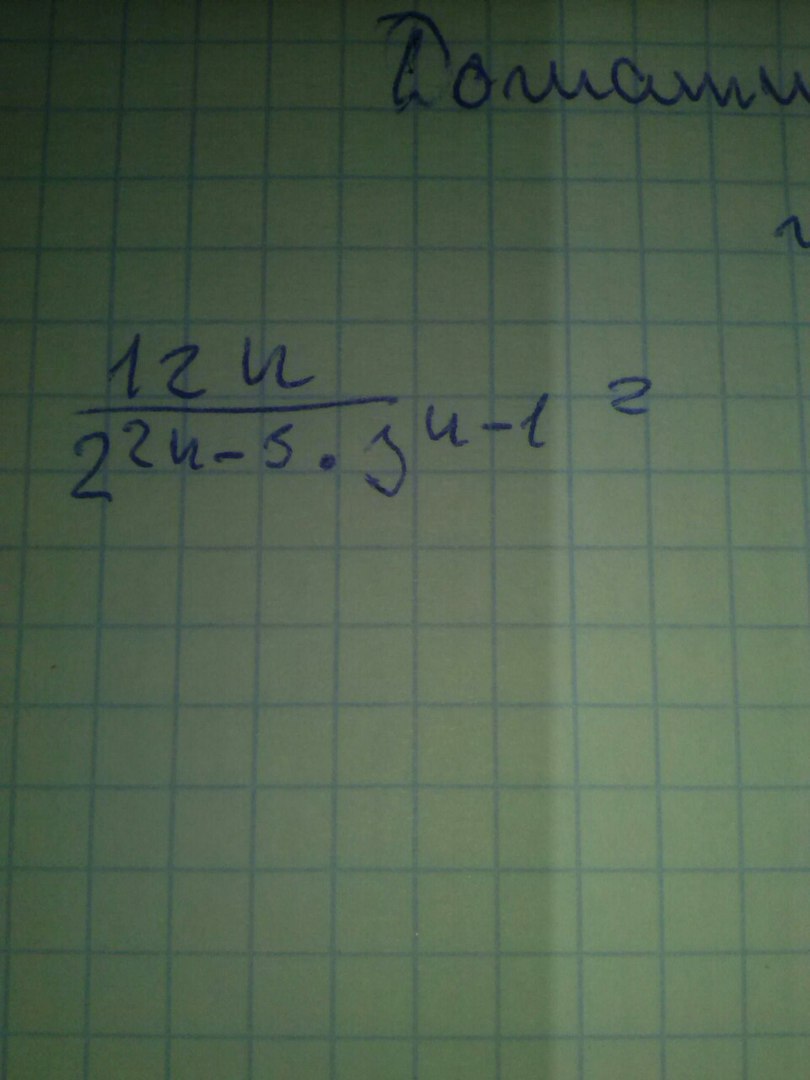 Домашн
12 n
2^2n-5 · 3^n-1 =